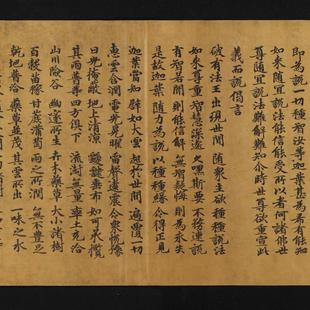 即為說一切種智汝等迦葉甚為希有能知
如來隨宜說法能信能受所以者何諸佛世
尊隨宜說法難解難知尒時世尊欲重宣此
義而說偈言
破有法王 出現世間 隨衆生欲 種種說法
如來尊重 智慧深遠 久嘿斯要 不務速說
有智若聞 則能信解 無智疑悔 則為永失
是故迦葉 隨力為說 以種種緣 令得正見
迦葉當知 譬如大雲 起於世間 遍覆一切
惠雲含潤 電光晃曜 雷聲遠震 令衆悅豫
日光掩蔽 地上清涼 靉靆垂布 如可承攬
其雨普等 四方俱下 流澍無量 率土充洽
山川險谷 幽邃所生 卉木藥草 大小諸樹
百穀苗稼 甘蔗蒲萄 雨之所潤 無不豐足
乾地普洽 藥木並茂 其雲所出 一味之水